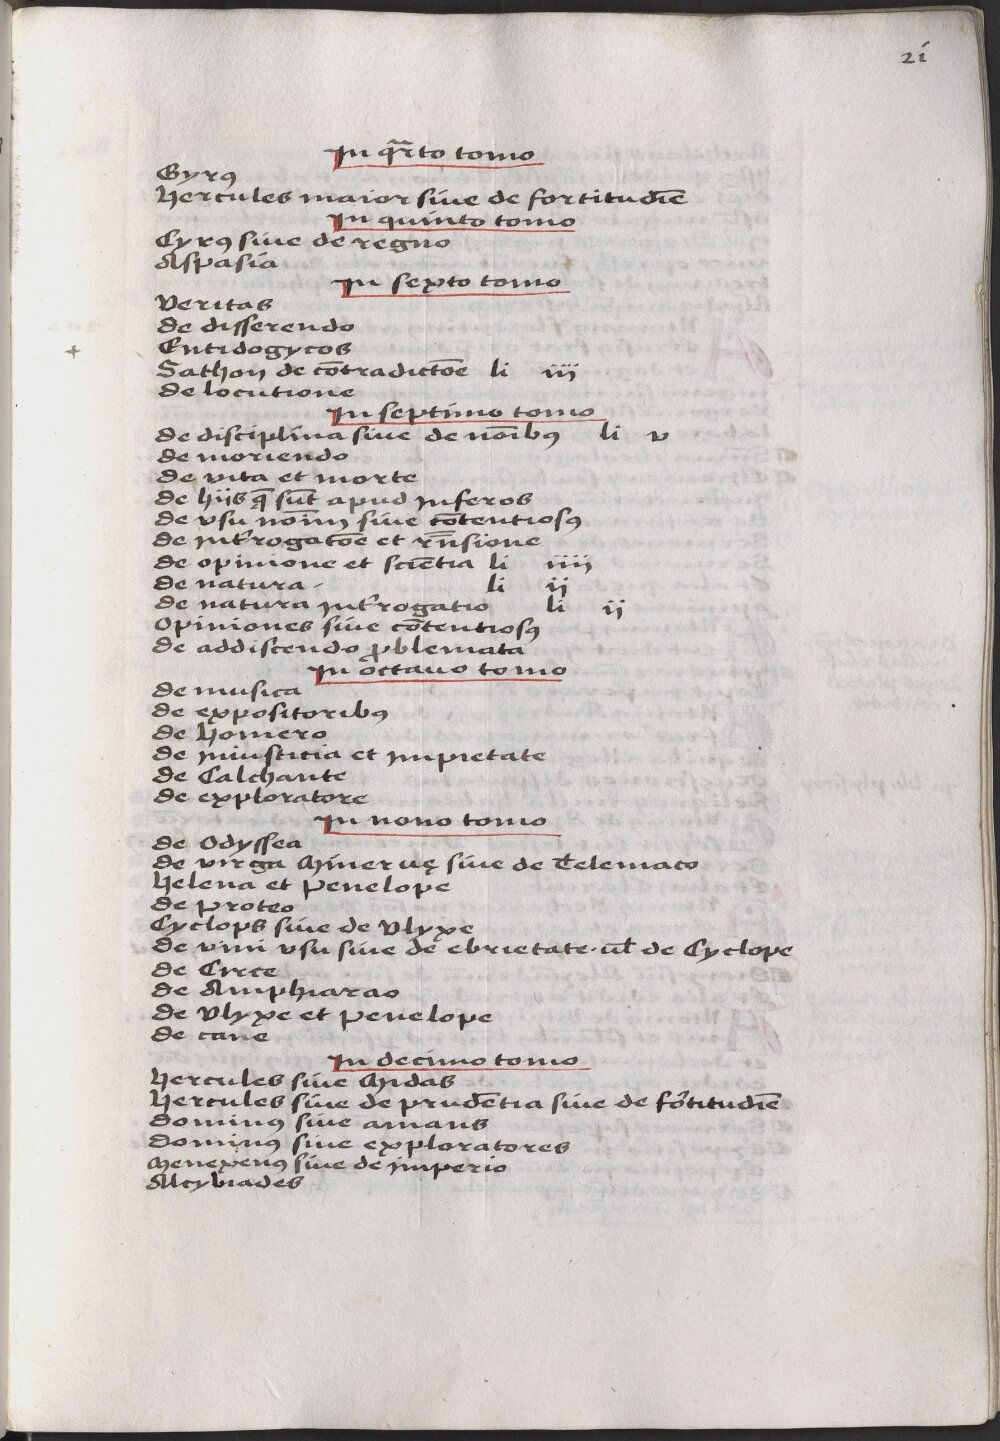 21
In qrto tomo
Cyrꝰ
Hercules maior siue de fortitudīe
In quinto tomo
Cyrꝰ siue de regno
Aspasia
In sexto tomo
Veritas
de disserendo
Entidogycos
Sathon de cōtradictōe li iij
de locutione
In septimo tomo
de disciplina siue de noībꝰ li v
de moriendo
de vita et morte
de hijs q̄ sūt apud inferos
de vsu noīm siue cōtentiosꝰ
de int̄rogatōe et rn̄sione
de opinione et sciētia li iiij
de natura li ij
de natura int̄rogatio li ij
Opiniones siue cōtentiosꝰ
de addiscendo ꝓblemata
In octauo tomo
de musica
de expositoribꝰ
de Homero
de iniusticia et impietate
de Calchante
de exploratore
In nono tomo
de Odyssea
de virga Mineruę siue de Telemaco
Helena et Penelope
de Proteo
Cyclops siue de Vlyxe
de vini vsu siue de ebrietate vl̄ de Cyclope
de Circe
de Amphiarao
de Vlyxe et Penelope
de cane
In decimo tomo
Hercules siue Midas
Hercules siue de prudētia siue de fortitudīe
dominꝰ siue amans
dominꝰ siue exploratores
Menexenꝰ siue de imperio
Alcybiades